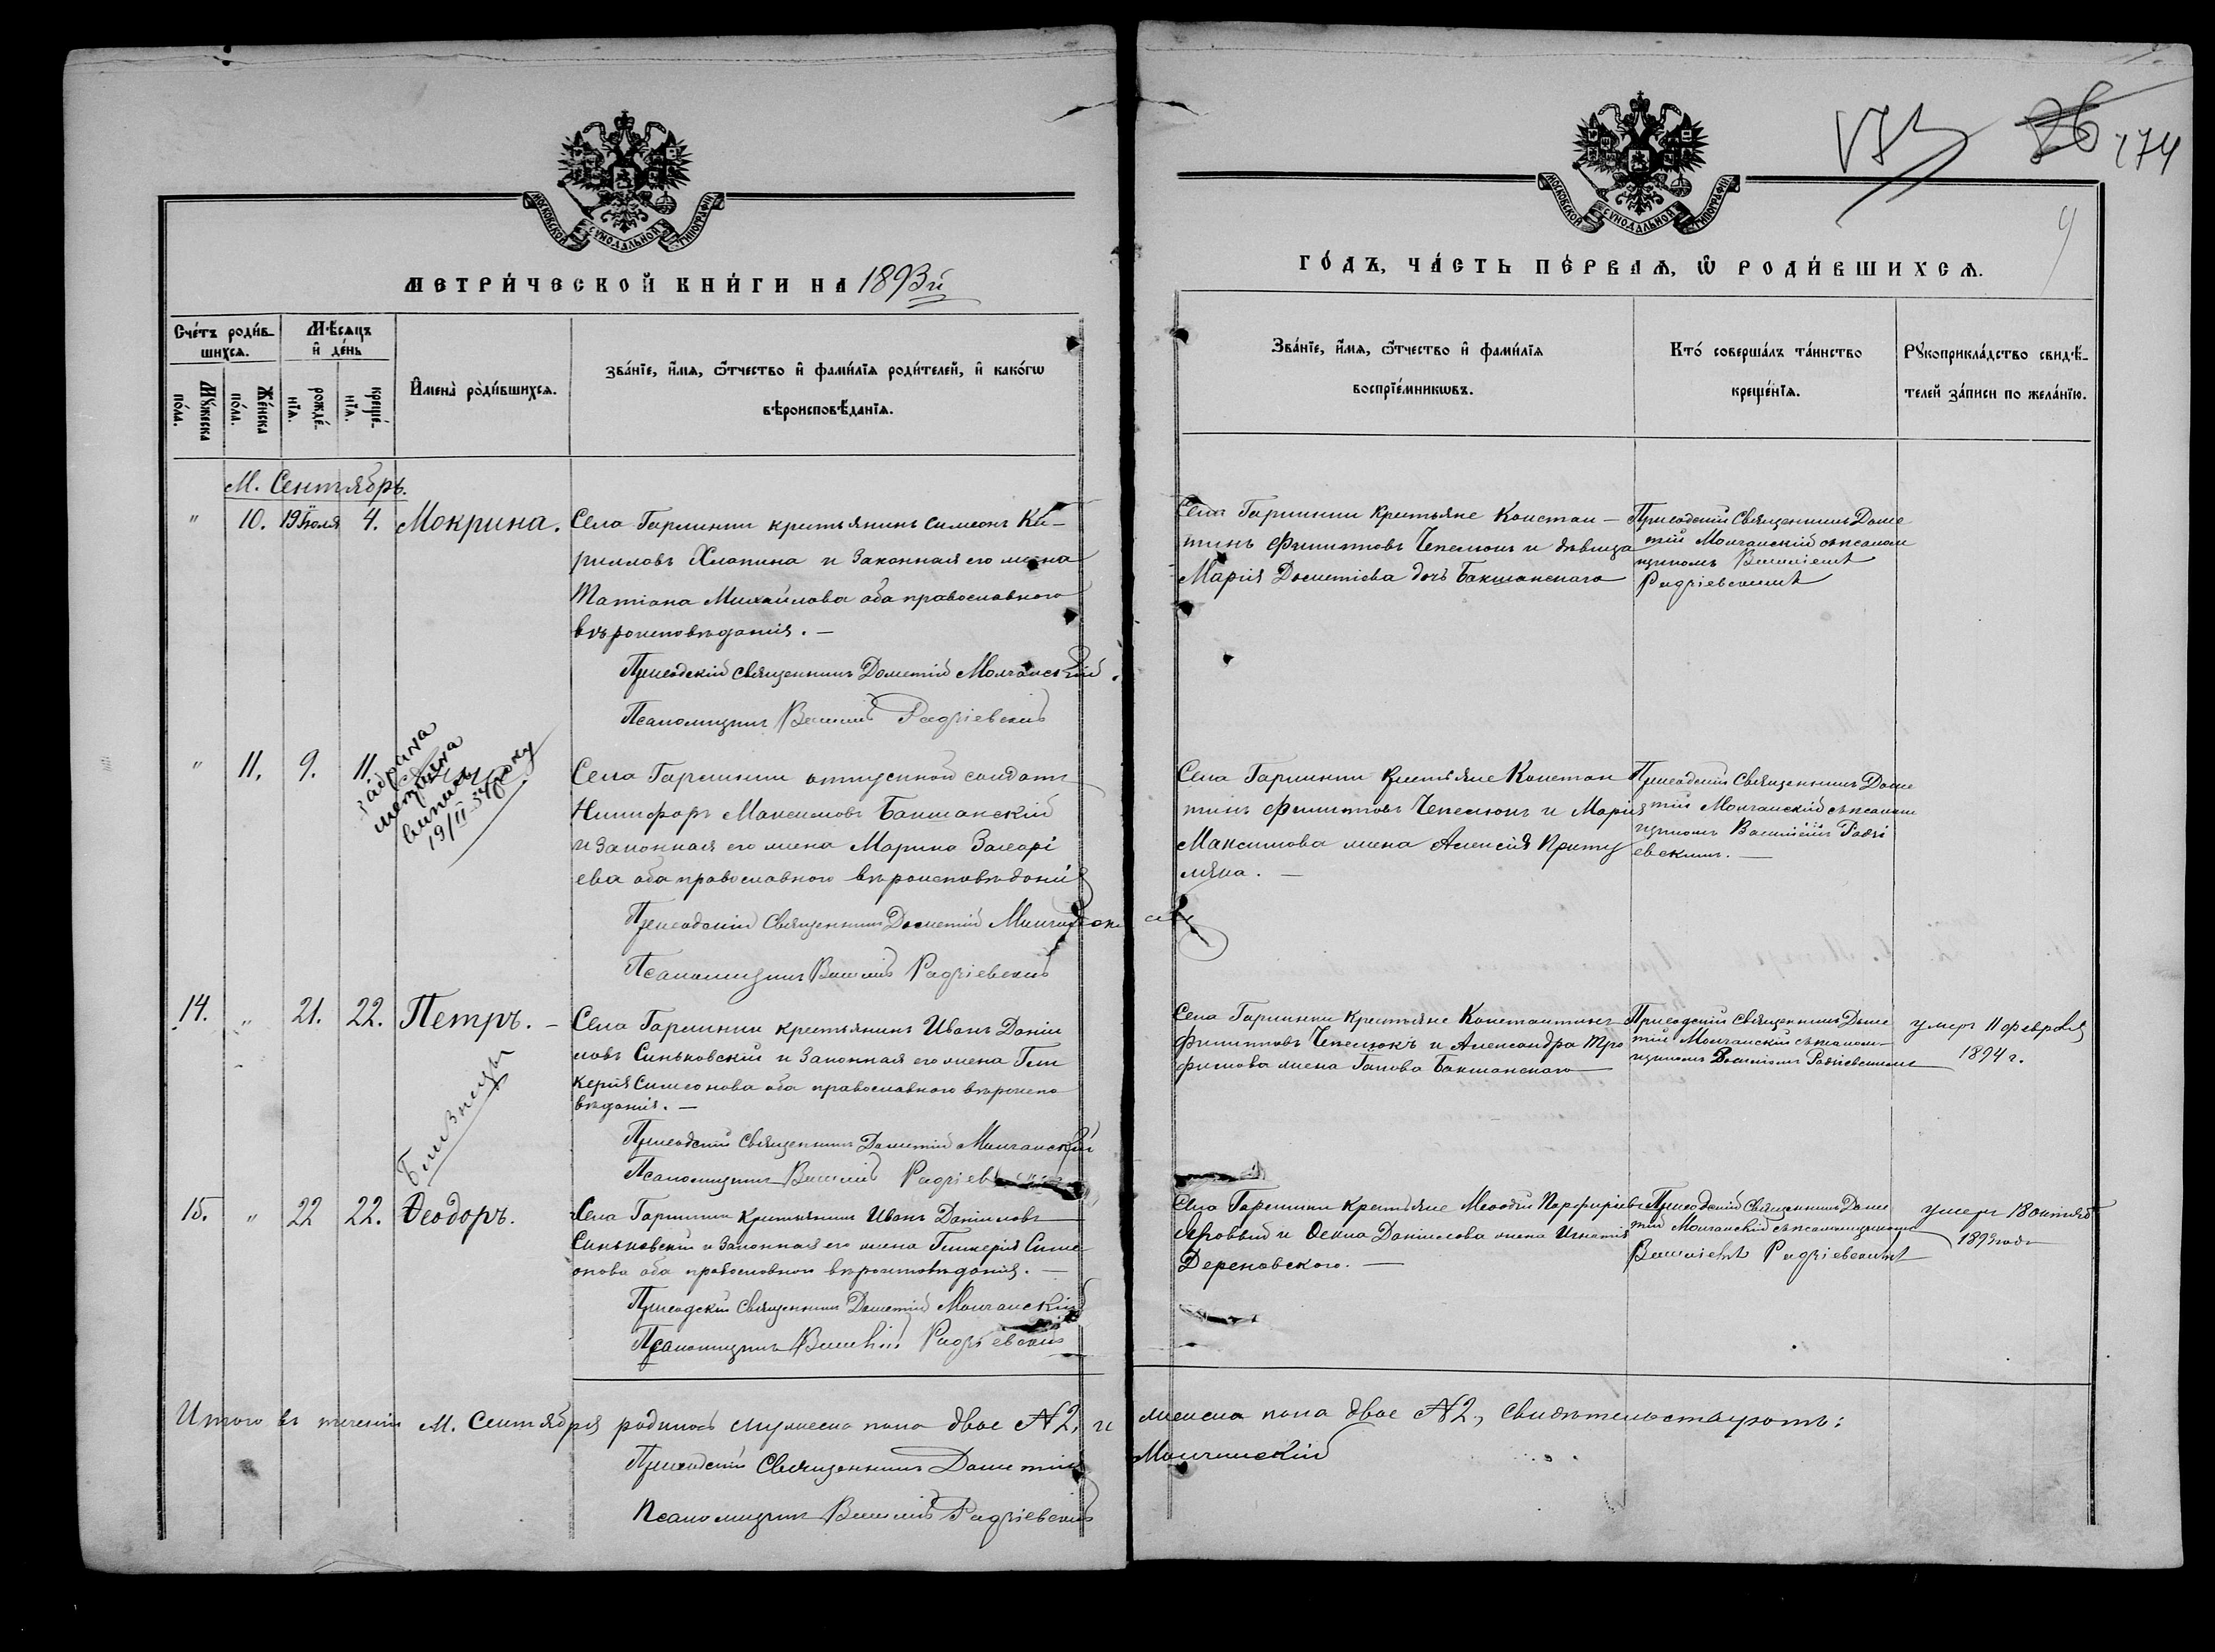 173 86 174
9
МОСКОВСКОЙ СѴНОДАЛЬНОЙ ТИПОГРАФІИ
МОСКОВСКОЙ СѴНОДАЛЬНОЙ ТИПОГРАФІИ
МЕТРИ́ЧЕСКОЙ КНИ́ГИ НА 1893й
ГО́ДЪ, ЧА́СТЬ ПЕ́РВАѦ, Ѽ РОДИ́ВШИХСѦ.
Сче́тъ роди́в-
шихсѧ.
Мꙋ́жеска
по́ла.
Же́нска
по́ла.
Мѣ́сѧцъ
и҆ де́нь
рожде́-
нїѧ.
креще́-
нїѧ.
И҆мена̀ роди́вшихсѧ.
Зва́нїе, и҆́мѧ, ѻ҆́тчество и҆ фами́лїѧ роди́телей, и҆ како́гѡ
вѣроисповѣ́данїѧ.
Зва́нїе, и҆́мѧ, ѻ҆́тчество и҆ фами́лїѧ
воспрїе́мникѡвъ.
Кто́ соверша́лъ та́инство
креще́нїѧ.
Рꙋкоприкла́дство свидѣ́-
телей за́писи по жела́нїю.
М. Сентябрь.
" 10. 19 Іюля 4. Мокрина.
Села Гармынки крестьянинъ Симеонъ Ки-
рилловъ Хлопина и законная его жена
Татіана Михайлова оба православного
вѣроисповѣданія. —
Приходскій Священникъ Дометій Молчанскій.
Псаломщикъ Василій Радзіевскій
Села Гармынки крестьяне Констан-
тинъ Филипповъ Чепелюкъ и дѣвица
Марія Дометіева дочь Бакшанскаго
Приходскій Священникъ Доме
тій Молчанскій съ псалом
щикомъ Василіемъ
Радзіевскимъ
" 11. 9. 11.
19/II 34 року
Села Гармынки отпускной солдатъ
Никифоръ Максимовъ Бакшанскій
и законная его жена Марина Захарі
ева оба православного вѣроисповѣданія
Приходскій Священникъ Дометій Молчанскій
Псаломщикъ Василій Радзіевскій
Села Гармынки крестьяне Констан
тинъ Филипповъ Чепелюкъ и Марія
Максимова жена Алексія Приту
ляка. —
Приходскій Священникъ Доме
тій Молчанскій съ псалом
щикомъ Василіемъ Радзі
евскимъ. —
14. " 21. 22. Петръ. —
Близнецы
Села Гармынки крестьянинъ Иванъ Даніи
ловъ Синьковскій и законная его жена Гли
керія Симеонова оба православного вѣроиспо
вѣданія. —
Приходскій Священникъ Дометій Молчанскій
Псаломщикъ Василій Радзіевскій
Села Гармынки крестьяне Константинъ
Филипповъ Чепелюкъ и Александра Тро
фимова жена Бакшанскаго
Приходскій Священникъ Доме
тій Молчанскій съ псалом-
щикомъ Василіемъ Радзіевскимъ
умеръ 11 февраля
1894 г.
15. " 22 22. Ѳеодоръ.
Села Гармынки крестьянинъ Иванъ Даніиловъ
Синьковскій и законная его жена Гликерія Симе
онова оба православного вѣроисповѣданія. —
Приходскій Священникъ Дометій Молчанскій
Псаломщикъ Василій Радзіевскій
Села Гармынки крестьяне Меѳодій Порфиріевъ
Яровый и Ѳекла Даніилова жена Игнатія
Дереновского. —
Приходскій Священникъ Доме
тій Молчанскій съ псаломщикомъ
Василіемъ Радзіевскимъ
умеръ 18 октября
1893 года
Итого въ теченіи М. Сентября родилось мужеска пола двое №2, и женска пола двое №2, свидѣтельствуютъ:
Приходскій Священникъ Дометій Молчанскій
Псаломщикъ Василій Радзіевскій